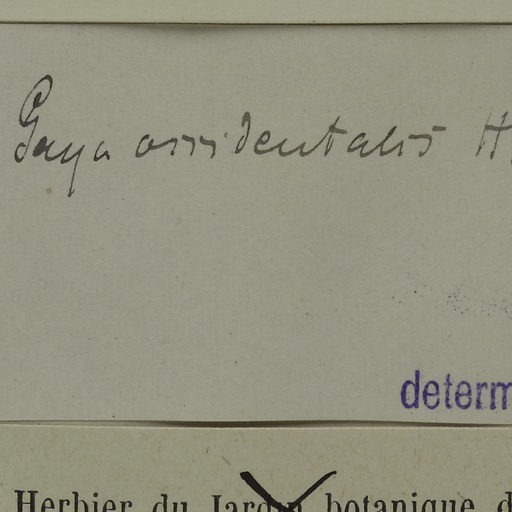 Gaya occidentalis H.
determ
Herbier du Jardin botanique d